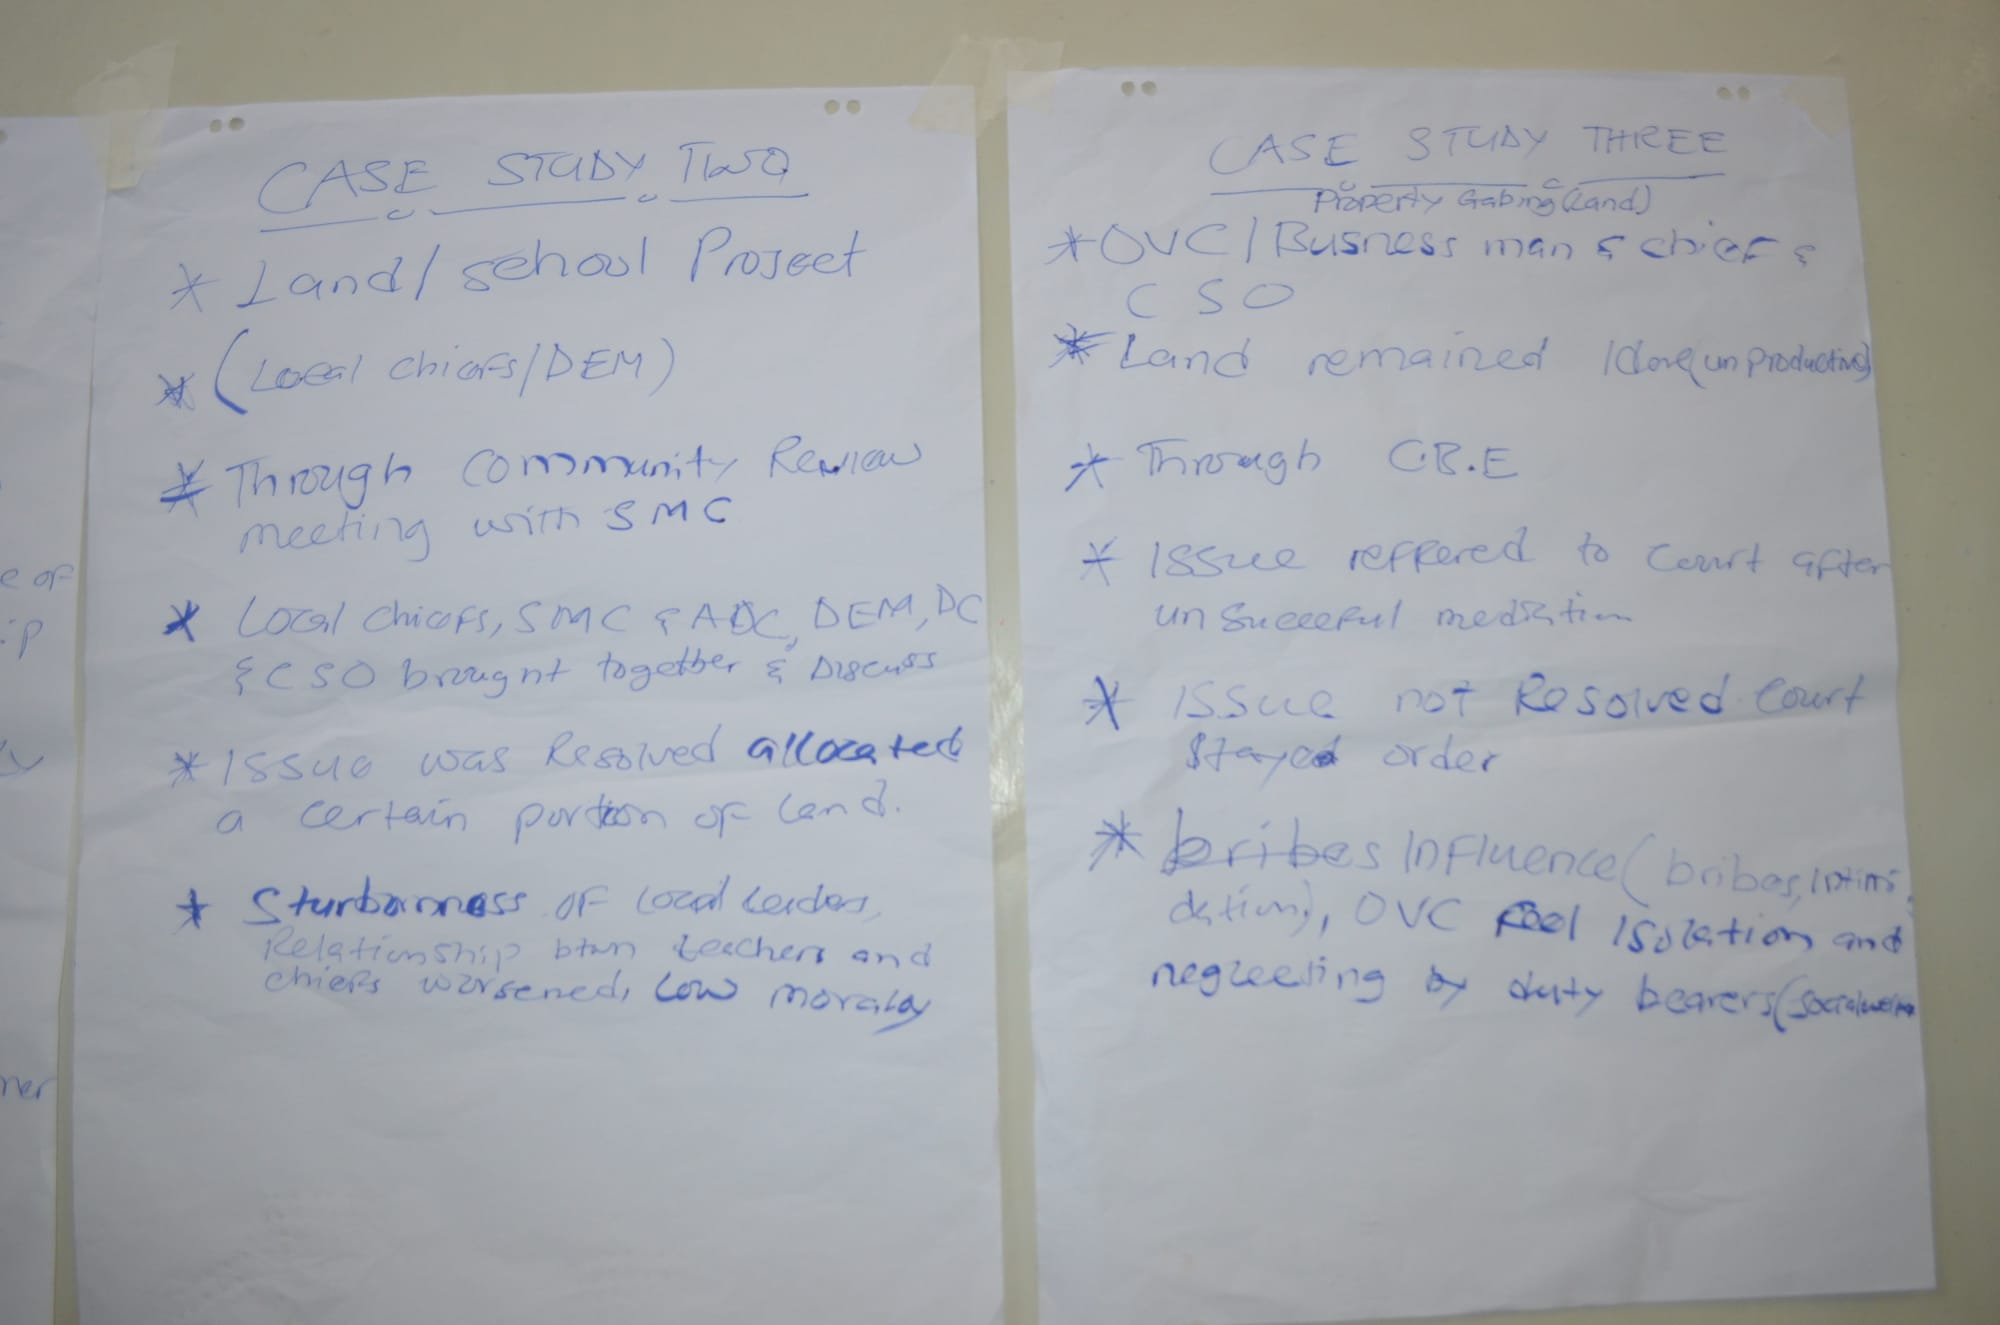 e of
ip
y
ner
CASE STUDY TWO
* Land/school Project
* (Local chiefs/DEM)
* Through Community Review
meeting with SMC
* Local chiefs, SMC & ADC, DEM, DC
& CSO brought together & Discuss
* Issue was Resolved allocated
a certain portion of land.
* Sturbornness of local leaders,
Relationship btwn teachers and
chiefs worsened, low moraloy
CASE STUDY THREE
Property Gabing (Land)
* OVC/Busness man & chief &
CSO
* Land remained (unproductive)
* Through C.B.E
* Issue reffered to Court after
unsuccessful mediation
* Issue not Resolved Court
stayed order
* bribes Influence (bribes, intimi
dation), OVC feel Isolation and
neglecting by duty bearers (